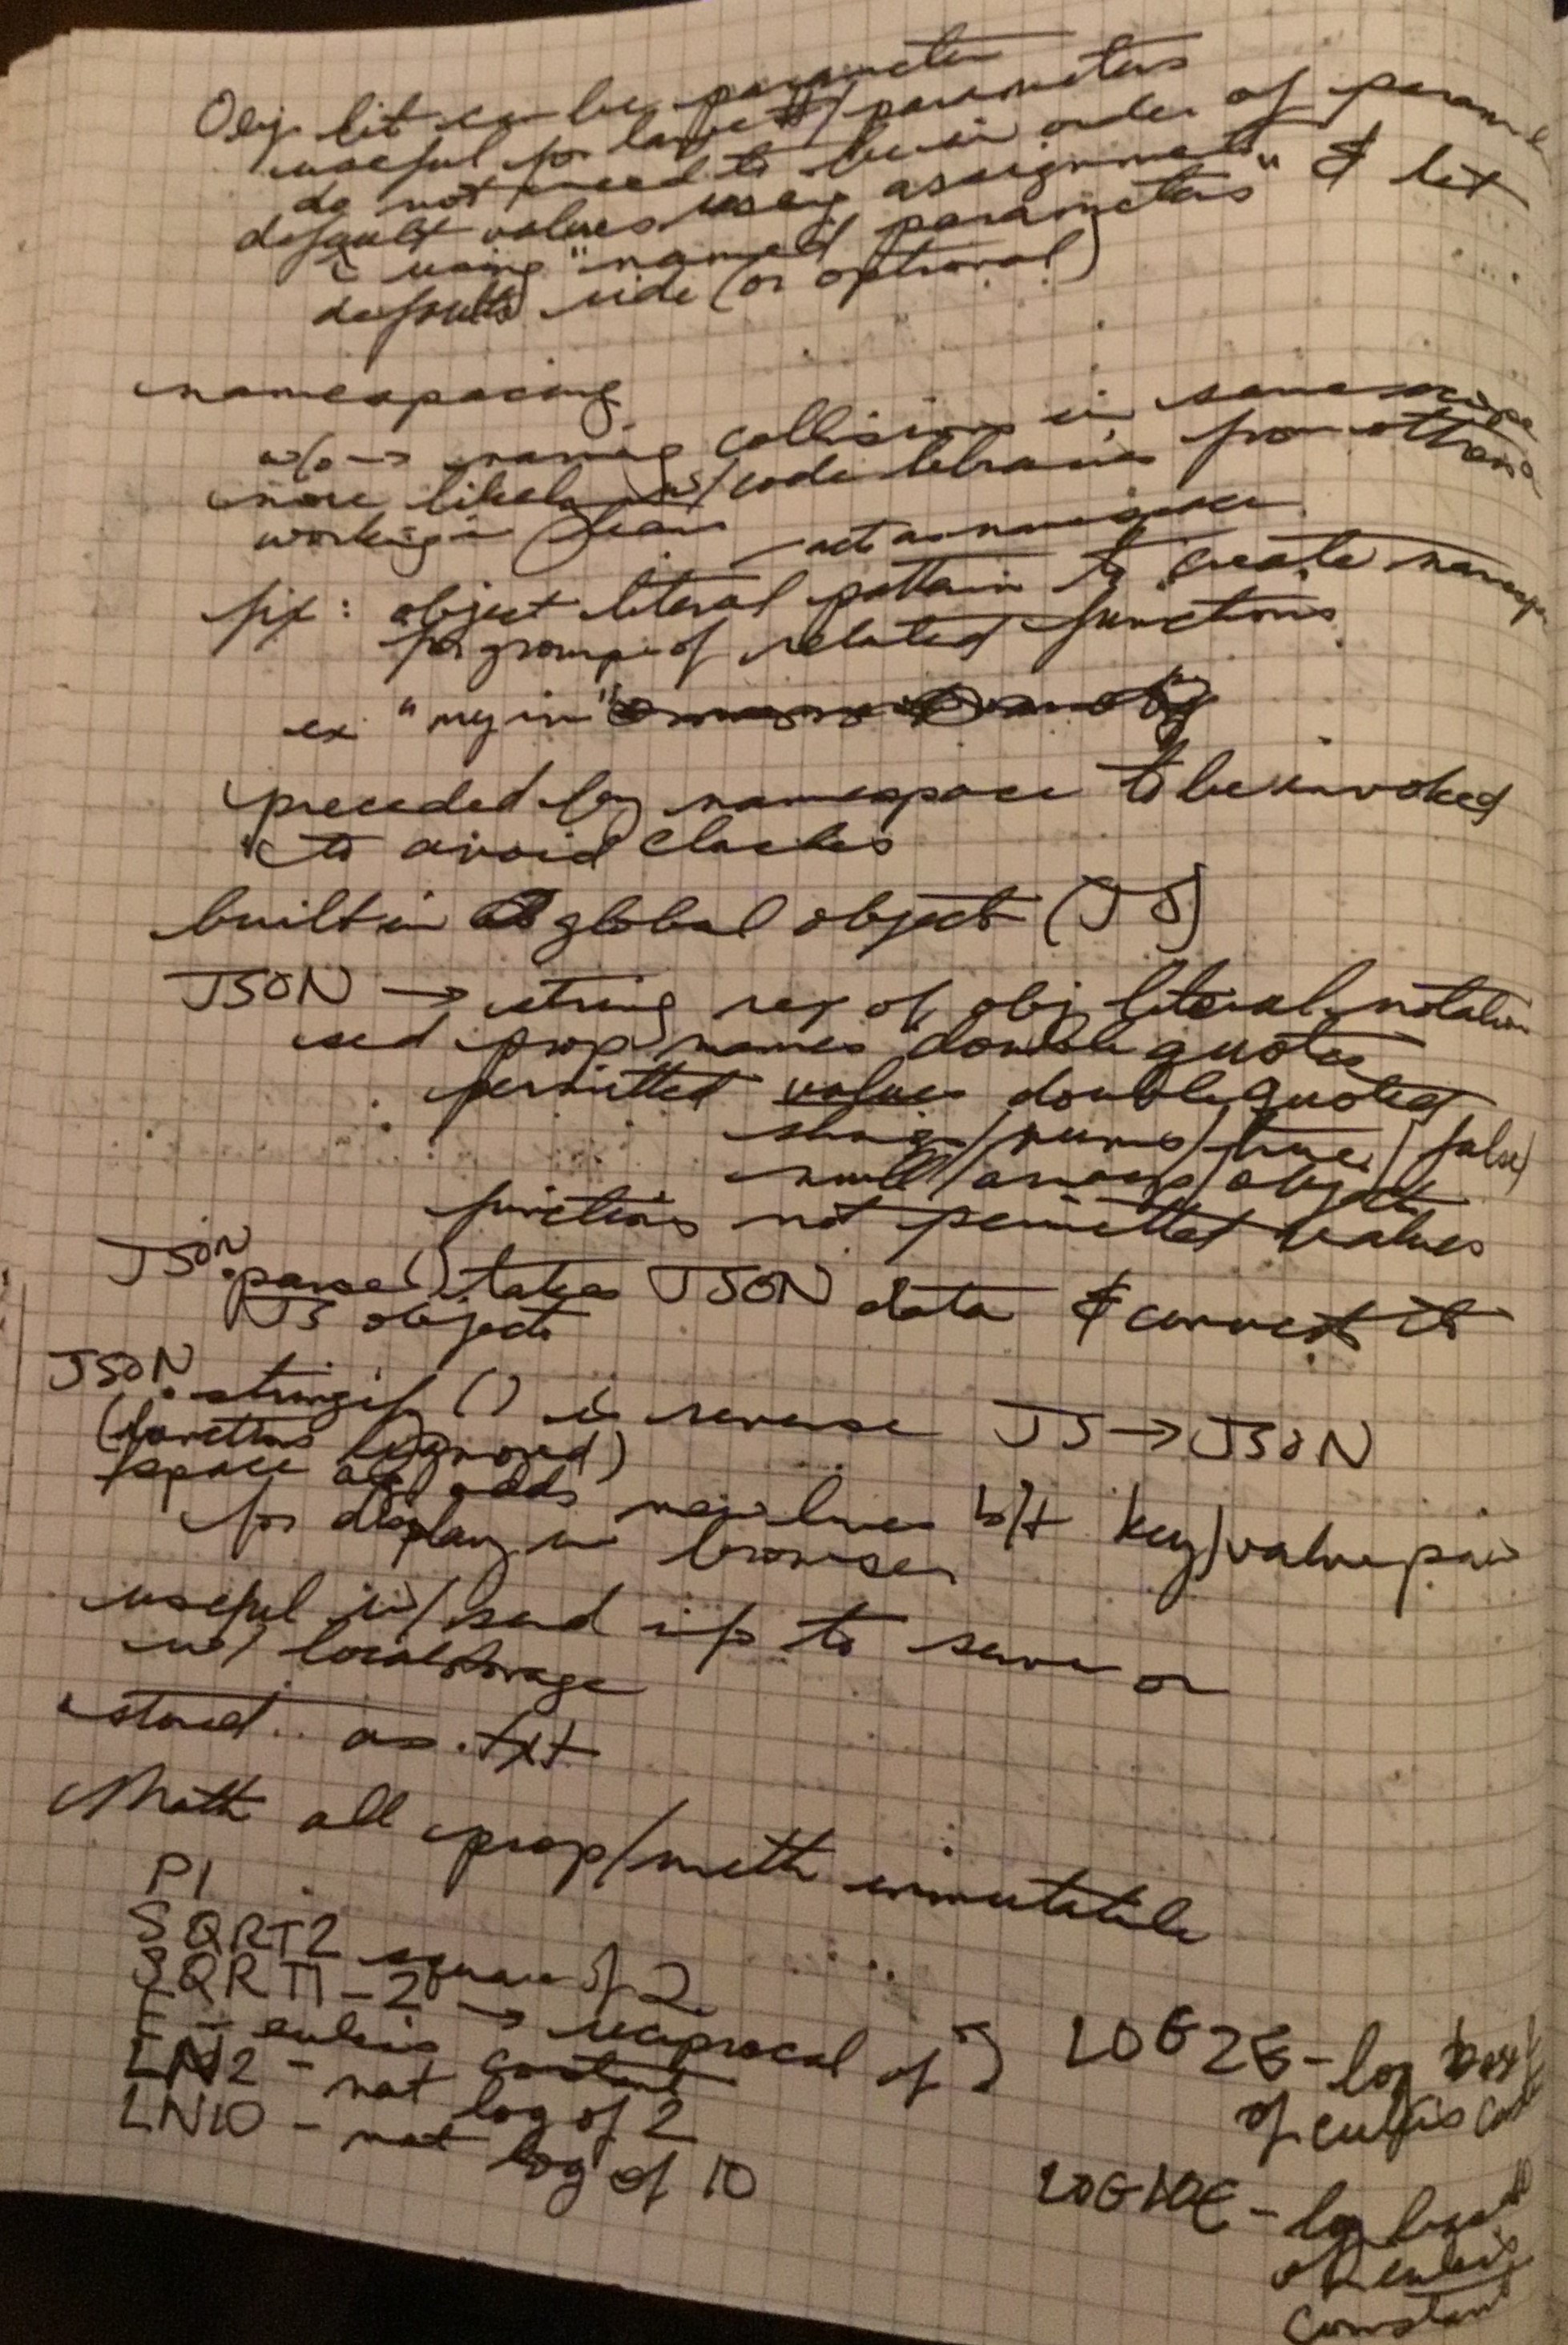 Obj lit can be parameter
useful for large # parameters
do not need to be in order of param
default values using assignment
using "named parameters" & let
defaults ride (or optional)
namespacing
w/o → naming collisions in same scope
more likely w/ code libraries from others
working in team
act as namespace
fix: object literal pattern to create namespa
for group of related functions
ex "myin"
preceded by namespace to be invoked
to avoid clashes
built in global object (JS)
JSON → string rep of obj literal notation
prop names double quotes
permitted values double quoted
strings/nums/true/false/
null/arrays/object
functions not permitted values
JSON.parse() takes JSON data & convert to
JS objects
JSON.stringif () is reverse JS → JSON
(functions ignored)
space arg adds newlines b/t key/value pair
for display in browser
useful w/ send info to server or
w/ localstorage
stored as .txt
Math all prop/meth immutable
PI
SQRT2 square of 2
SQRT1_2 → reciprocal of
E - eulers constant
LN2 - nat log of 2
LN10 - nat log of 10
LOG2E - log base
of eulers const
LOG10E - log base
of eulers
constant